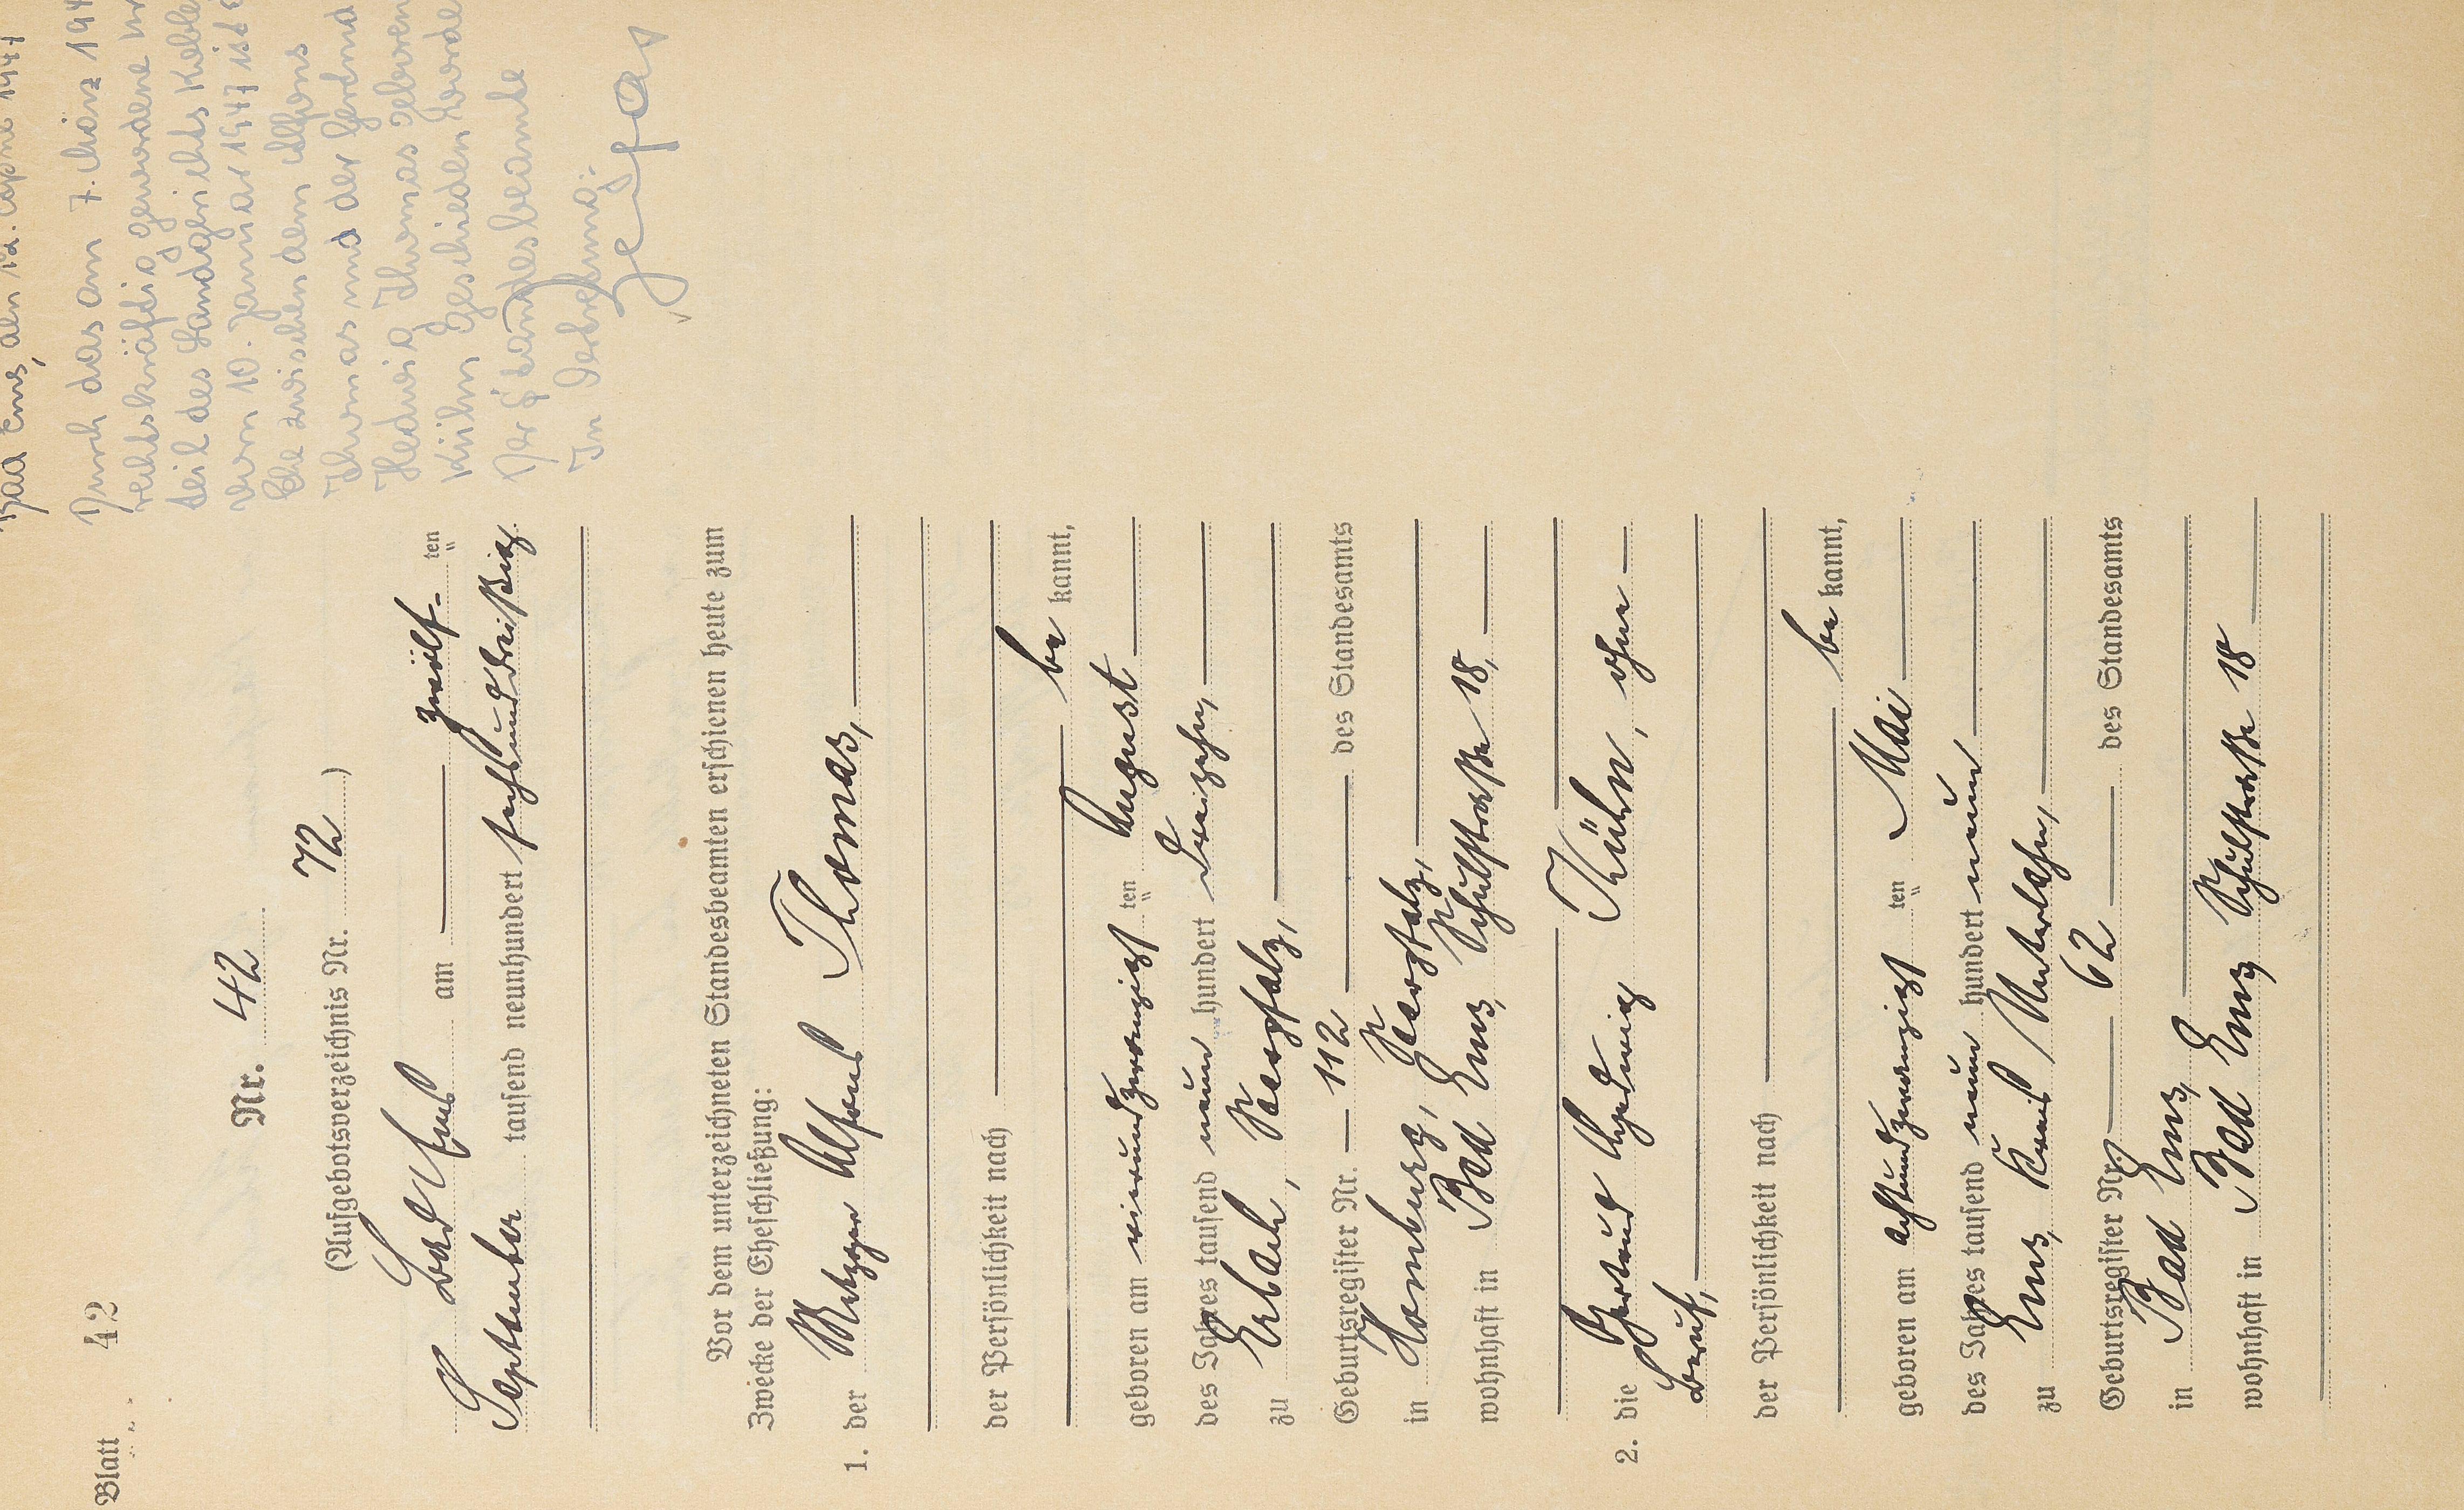 Blatt 42
Nr. 42
(Aufgebotsverzeichnis Nr. 72)
Bad Ems am zwölf- ten
September tausend neunhundert sechsunddreißig.
Vor dem unterzeichneten Standesbeamten erschienen heute zum
Zwecke der Eheschließung:
1. der Metzger Alfons Thomas,
der Persönlichkeit nach bekannt,
geboren am vierundzwanzigsten August
des Jahres tausend neun hundert dreizehn,
zu Erbach, Saarpfalz,
Geburtsregister Nr. 112 des Standesamts
in Homburg, Saarpfalz,
wohnhaft in Bad Ems, Schulstraße 18,
2. die Gertrud Hedwig Kühn, ohne
Beruf,
der Persönlichkeit nach bekannt,
geboren am achtundzwanzigsten Mai
des Jahres tausend neun hundert neun
zu Ems, Kreis Unterlahn,
Geburtsregister Nr. 62 des Standesamts
in Bad Ems,
wohnhaft in Bad Ems, Schulstraße 18
Bad Ems, den 12. April 1947
Durch das am 7. März 194
rechtskräftig gewordene Ur
teil des Landgerichts Koble
vom 10. Januar 1947 ist d
Ehe zwischen dem Alfons
Thomas und der Gertrud
Hedwig Thomas geboren
Kühn geschieden worde
Der Standesbeamte
In Vertretung: